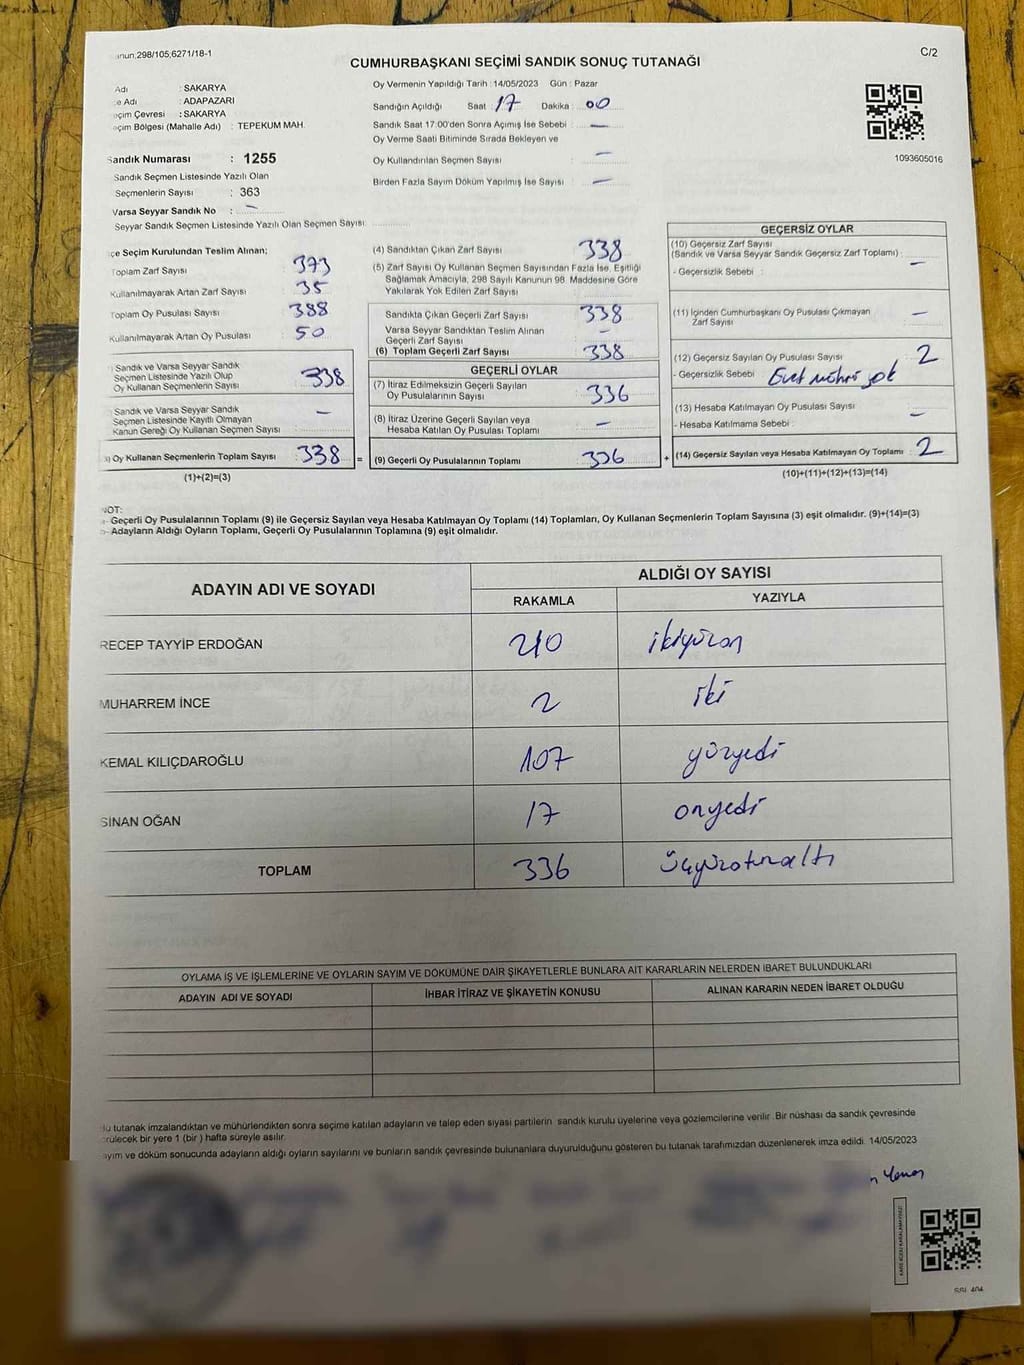 anun,298/105;6271/18-1
C/2
CUMHURBAŞKANI SEÇİMİ SANDIK SONUÇ TUTANAĞI
Adı : SAKARYA
çe Adı : ADAPAZARI
eçim Çevresi : SAKARYA
eçim Bölgesi (Mahalle Adı) : TEPEKUM MAH.
Sandık Numarası : 1255
Sandık Seçmen Listesinde Yazılı Olan
Seçmenlerin Sayısı : 363
Varsa Seyyar Sandık No : –
Seyyar Sandık Seçmen Listesinde Yazılı Olan Seçmen Sayısı:
Oy Vermenin Yapıldığı Tarih : 14/05/2023 Gün : Pazar
Sandığın Açıldığı Saat 17 Dakika : 00
Sandık Saat 17:00'den Sonra Açımış İse Sebebi : –
Oy Verme Saati Bitiminde Sırada Bekleyen ve
Oy Kullandırılan Seçmen Sayısı : –
Birden Fazla Sayım Döküm Yapılmış İse Sayısı : –
1093605016
çe Seçim Kurulundan Teslim Alınan;
Toplam Zarf Sayısı : 373
Kullanılmayarak Artan Zarf Sayısı : 35
Toplam Oy Pusulası Sayısı : 388
Kullanılmayarak Artan Oy Pusulası : 50
) Sandık ve Varsa Seyyar Sandık
Seçmen Listesinde Yazılı Olup
Oy Kullanan Seçmenlerin Sayısı : 338
Sandık ve Varsa Seyyar Sandık
Seçmen Listesinde Kayıtlı Olmayan
Kanun Gereği Oy Kullanan Seçmen Sayısı : –
) Oy Kullanan Seçmenlerin Toplam Sayısı : 338 =
(1)+(2)=(3)
(4) Sandıktan Çıkan Zarf Sayısı : 338
(5) Zarf Sayısı Oy Kullanan Seçmen Sayısından Fazla İse, Eşitliği
Sağlamak Amacıyla, 298 Sayılı Kanunun 98. Maddesine Göre
Yakılarak Yok Edilen Zarf Sayısı :
Sandıkta Çıkan Geçerli Zarf Sayısı : 338
Varsa Seyyar Sandıktan Teslim Alınan
Geçerli Zarf Sayısı : –
(6) Toplam Geçerli Zarf Sayısı : 338
GEÇERLİ OYLAR
(7) İtiraz Edilmeksizin Geçerli Sayılan
Oy Pusulalarının Sayısı : 336
(8) İtiraz Üzerine Geçerli Sayılan veya
Hesaba Katılan Oy Pusulası Toplamı : –
(9) Geçerli Oy Pusulalarının Toplamı : 336 +
GEÇERSİZ OYLAR
(10) Geçersiz Zarf Sayısı
(Sandık ve Varsa Seyyar Sandık Geçersiz Zarf Toplamı) : –
- Geçersizlik Sebebi :
(11) İçinden Cumhurbaşkanı Oy Pusulası Çıkmayan
Zarf Sayısı : –
(12) Geçersiz Sayılan Oy Pusulası Sayısı : 2
- Geçersizlik Sebebi : Evet mührü yok
(13) Hesaba Katılmayan Oy Pusulası Sayısı : –
- Hesaba Katılmama Sebebi :
(14) Geçersiz Sayılan veya Hesaba Katılmayan Oy Toplamı : 2
(10)+(11)+(12)+(13)=(14)
NOT:
Geçerli Oy Pusulalarının Toplamı (9) ile Geçersiz Sayılan veya Hesaba Katılmayan Oy Toplamı (14) Toplamları, Oy Kullanan Seçmenlerin Toplam Sayısına (3) eşit olmalıdır. (9)+(14)=(3)
Adayların Aldığı Oyların Toplamı, Geçerli Oy Pusulalarının Toplamına (9) eşit olmalıdır.
ADAYIN ADI VE SOYADI
ALDIĞI OY SAYISI
RAKAMLA YAZIYLA
RECEP TAYYİP ERDOĞAN 210 ikiyüzon
MUHARREM İNCE 2 iki
KEMAL KILIÇDAROĞLU 107 yüzyedi
SİNAN OĞAN 17 onyedi
TOPLAM 336 üçyüzotuzaltı
OYLAMA İŞ VE İŞLEMLERİNE VE OYLARIN SAYIM VE DÖKÜMÜNE DAİR ŞİKAYETLERLE BUNLARA AİT KARARLARIN NELERDEN İBARET BULUNDUKLARI
ADAYIN ADI VE SOYADI İHBAR İTİRAZ VE ŞİKAYETİN KONUSU ALINAN KARARIN NEDEN İBARET OLDUĞU
bu tutanak imzalandıktan ve mühürlendikten sonra seçime katılan adayların ve talep eden siyasi partilerin sandık kurulu üyelerine veya gözlemcilerine verilir. Bir nüshası da sandık çevresinde
örülecek bir yere 1 (bir ) hafta süreyle asılır.
ayım ve döküm sonucunda adayların aldığı oyların sayılarını ve bunların sandık çevresinde bulunanlara duyurulduğunu gösteren bu tutanak tarafımızdan düzenlenerek imza edildi. 14/05/2023